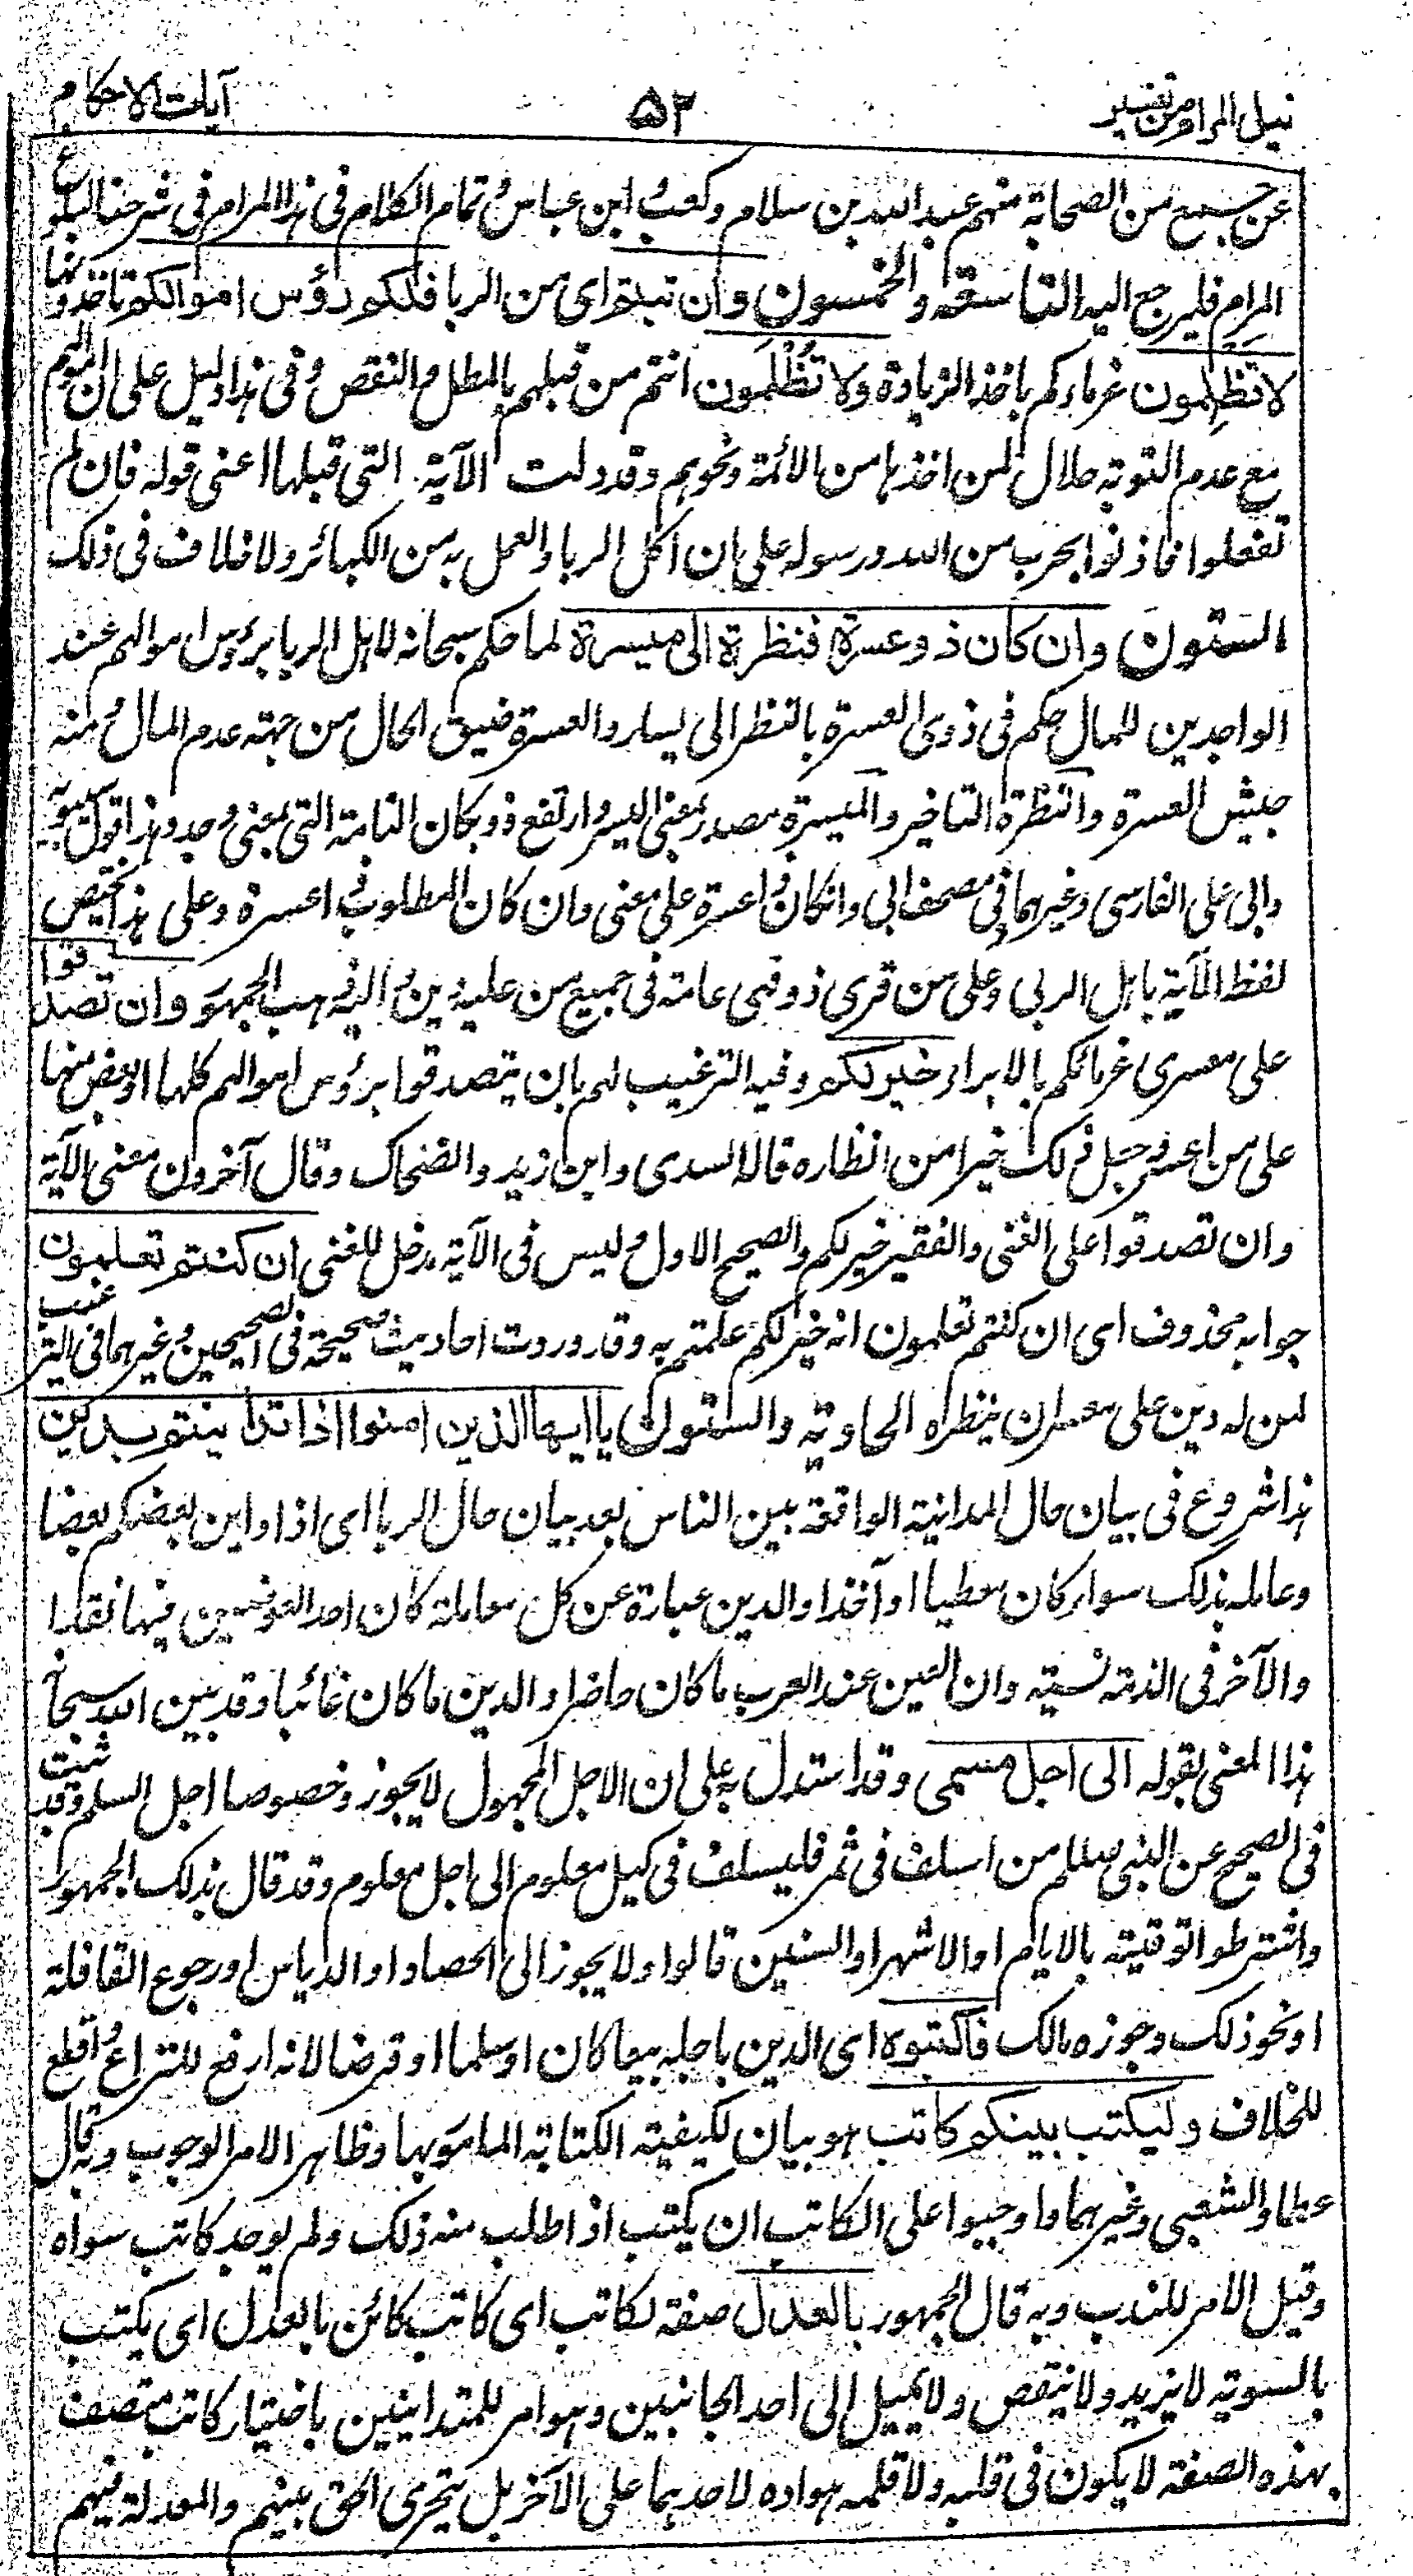 نيل المرام من تفسير ٥٢ آيات الاحكام
عن جميع من الصحابة منهم عبد الله بن سلام وكعب وابن عباس وتمام الكلام فى هذا المرام فى شرحنا لبلوغ
المرام فليرجع اليه التاسعة والخمسون وان تبتم اى من الربا فلكم رؤس اموالكم تاخذونها
لا تَظلِمون غرماءكم باخذ الزيادة ولا تُظْلَمون انتم من قبلهم بالمطل والنقص وفى هذا دليل على ان اموالهم
مع عدم التوبة حلال لمن اخذها من الائمة ونحوهم وقد دلت الآية التى قبلها اعنى قوله فان لم
تفعلوا فاذنوا بحرب من الله ورسوله على ان اكل الربا والعمل به من الكبائر ولا خلاف فى ذلك
الستون وان كان ذو عسرة فنظرة الى ميسرة لما حكم سبحانه لاهل الربا برؤس اموالهم عند
الواجدين للمال حكم فى ذوى العسرة بالنظر الى يسار والعسرة ضيق الحال من جهة عدم المال ومنه
جيش العسرة والنظرة التاخير والميسرة مصدر بمعنى اليسر وارتفع ذو بكان التامة التى بمعنى وجد وهذا قول سيبويه
وابى على الفارسى وغيرهما فى مصحف ابى وان كان ذا عسرة على معنى وان كان المطلوب ذا عسرة وعلى هذا يختص
لفظ الآية باهل الربى وعلى من قرى ذو فهى عامة فى جميع من عليه دين واليه ذهب الجمهور وان تصدقوا
على معسرى غرمائكم بالابراء خير لكم وفيه الترغيب لهم بان يتصدقوا برؤس اموالهم كلها او بعض منها
على من اعسر وجعل ذلك خيرا من انظاره قاله السدى وابن زيد والضحاك وقال آخرون معنى الآية
وان تصدقوا على الغنى والفقير خير لكم والصحيح الاول وليس فى الآية مدخل للغنى ان كنتم تعلمون
جوابه محذوف اى ان كنتم تعلمون انه خير لكم علمتم به وقد وردت احاديث صحيحة فى الصحيحين وغيرهما فى الترغيب
لمن له دين على معسر ان ينظره الحادية والستون يا ايها الذين امنوا اذا تداينتم بدين
هذا شروع فى بيان حال المداينة الواقعة بين الناس بعد بيان حال الربا اى اذا داين بعضكم بعضا
وعامله بذلك سواء كان معطيا او آخذا والدين عبارة عن كل معاملة كان احد العوضين فيها نقدا
والآخر فى الذمة نسية وان العين عند العرب ما كان حاضرا والدين ما كان غائبا وقد بين الله سبحانه
هذا المعنى بقوله الى اجل مسمى وقد استدل به على ان الاجل المجهول لا يجوز وخصوصا اجل السلم وقد ثبت
فى الصحيح عن النبى صللم من اسلف فى ثمر فليسلف فى كيل معلوم الى اجل معلوم وقد قال بذلك الجمهور
واشترطوا توقيته بالايام او الاشهر او السنين قالوا ولا يجوز الى الحصاد او الدياس او رجوع القافلة
او نحو ذلك وجوزه مالك فاكتبوه اى الدين باجله بيعا كان او سلما او قرضا لانه ارفع للنزاع واقطع
للخلاف وليكتب بينكم كاتب هو بيان لكيفية الكتابة المامور بها وظاهر الامر الوجوب وبه قال
عطا والشعبى وغيرهما واوجبوا على الكاتب ان يكتب اذا طلب منه ذلك ولم يوجد كاتب سواه
وقيل الامر للندب وبه قال الجمهور بالعدل صفة لكاتب اى كاتب كائن بالعدل اى يكتب
بالسوية لا يزيد ولا ينقص ولا يميل الى احد الجانبين وهو امر للمتداينين باختيار كاتب متصف
بهذه الصفة لا يكون فى قلبه ولا قلمه هوادة لاحدهما على الآخر بل يتحرى الحق بينهم والمعدلة فيهم